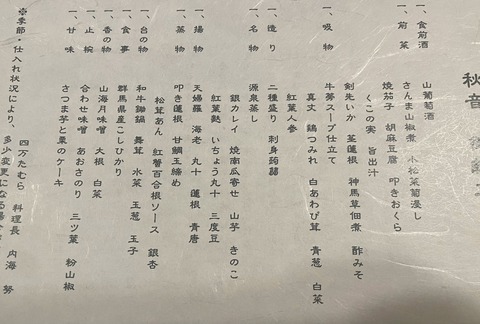 秋音
一、食前酒　山葡萄酒
一、前菜　さんま山椒煮　小松菜菊浸し
焼茄子　胡麻豆腐　叩きおくら
くこの実　旨出汁
剣先いか　茎蓮根　神馬草佃煮　酢みそ
一、吸物　牛蒡スープ仕立て
真丈　鶏つみれ　白あわび茸　青葱　白菜
紅葉人参
一、造り　二種盛り　刺身蒟蒻
一、名物　源泉蒸し
銀カレイ　焼南瓜寄せ　山芋　きのこ
紅葉麩　いちょう丸十　三度豆
一、揚物　天婦羅　海老　丸十　蓮根　青唐
一、蒸物　叩き蓮根　甘鯛玉締め
松茸あん　紅蟹百合根ソース　銀杏
一、台の物　和牛鋤鍋　舞茸　水菜　玉葱　玉子
一、食事　群馬県産こしひかり
一、香の物　山海月味噌　大根　白菜
一、止椀　合わせ味噌　あおさのり　三ツ葉　粉山椒
一、甘味　さつま芋と栗のケーキ
四万たむら　料理長　内海　努
※季節・仕入れ状況により、多少変更になる場合